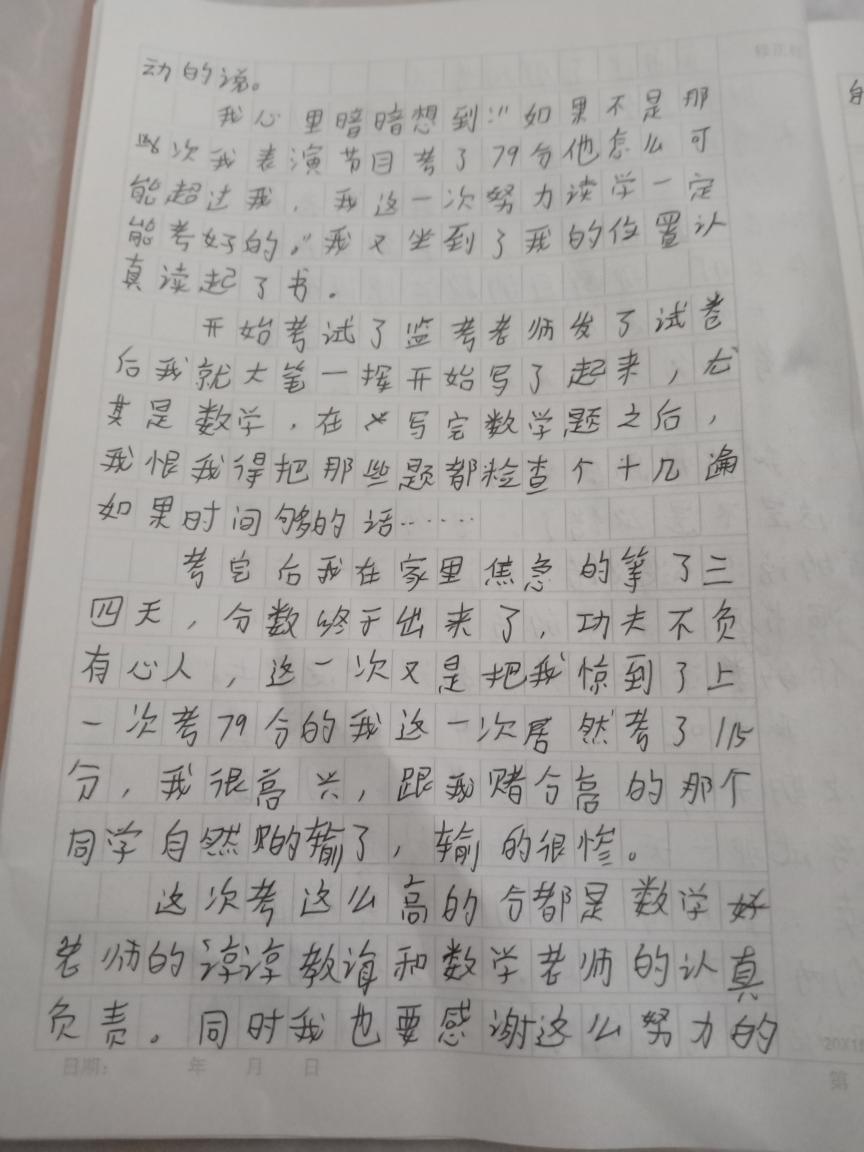 动的说。
我心里暗暗想到：“如果不是那
次我表演节目考了79分他怎么可
能超过我，我这一次努力读学一定
能考好的。”我又坐到了我的位置认
真读起了书。
开始考试了监考老师发了试卷
后我就大笔一挥开始写了起来，尤
其是数学，在写完数学题之后，
我恨我得把那些题都检查个十几遍
如果时间够的话……
考完后我在家里焦急的等了三
四天，分数终于出来了，功夫不负
有心人，这一次又是把我惊到了上
一次考79分的我这一次居然考了115
分，我很高兴，跟我赌分高的那个
同学自然的输了，输的很惨。
这次考这么高的分都是数学
老师的谆谆教诲和数学老师的认真
负责。同时我也要感谢这么努力的
日期： 年 月 日
第
20X16